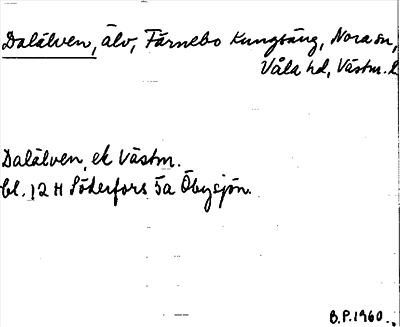 Dalälven, älv, Färnebo Kungsäng, Nora sn,
Våla hd, Västm. l
Dalälven, ek Västm.
bl. 12 H Söderfors 5a Öbysjön.
B.P. 1960.